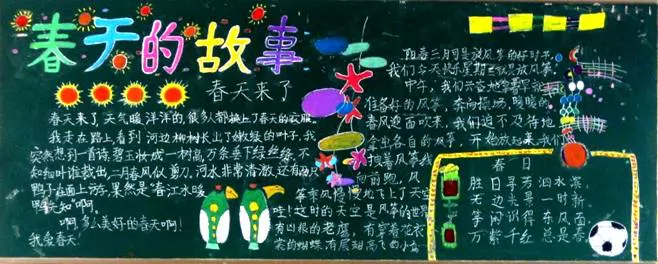 春天的故事
春天来了
春天来了天气暖洋洋的,很多都换上了春天的衣服
我走在路上看到河边柳树长出了嫩绿的叶子,我
突然想到一首诗:碧玉妆成一树高,万条垂下绿丝绦,不
知细叶谁裁出,二月春风似剪刀,河水非常清澈,还有
鸭子在面上游,果然是春江水暖
鸭先知啊!
啊,多么美好的春天啊!
我爱春天!
阳春三月司是放风筝的好时节
我们今天快乐星期
中午,我们兴
准备好的风筝,奔向操场,暖暖的
春风迎面吹来,我们迫不及待地
拿出各自的风筝,开始放起来,我们
拽着风筝
向前跑,风
筝乘风慢慢地飞上了天
哇!这时的天空是风筝的世界
有凶狠的老鹰,有穿着花衣
裳的蝴蝶,有展翅高飞的小
春日
胜日寻芳泗水滨
无边光景一时新
等闲识得东风面
万紫千红总是春